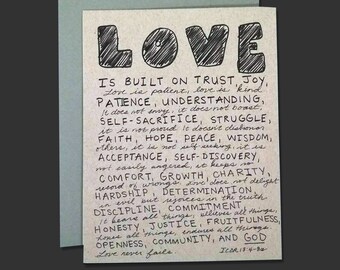 LOVE
IS BUILT ON TRUST, JOY,
Love is patient, love is kind
PATIENCE, UNDERSTANDING,
It does not envy, it does not boast,
SELF-SACRIFICE, STRUGGLE,
it is not proud. It doesn't dishonor
FAITH, HOPE, PEACE, WISDOM,
others, it is not self seeking, it is
ACCEPTANCE, SELF-DISCOVERY,
not easily angered, it keeps no
COMFORT, GROWTH, CHARITY,
record of wrongs. Love does not delight
HARDSHIP, DETERMINATION,
in evil but rejoices in the truth
DISCIPLINE, COMMITMENT,
It bears all things, believes all things,
HONESTY, JUSTICE, FRUITFULNESS,
hopes all things, endures all things.
OPENNESS, COMMUNITY, AND GOD
Love never fails. 1COR 13:4-8a